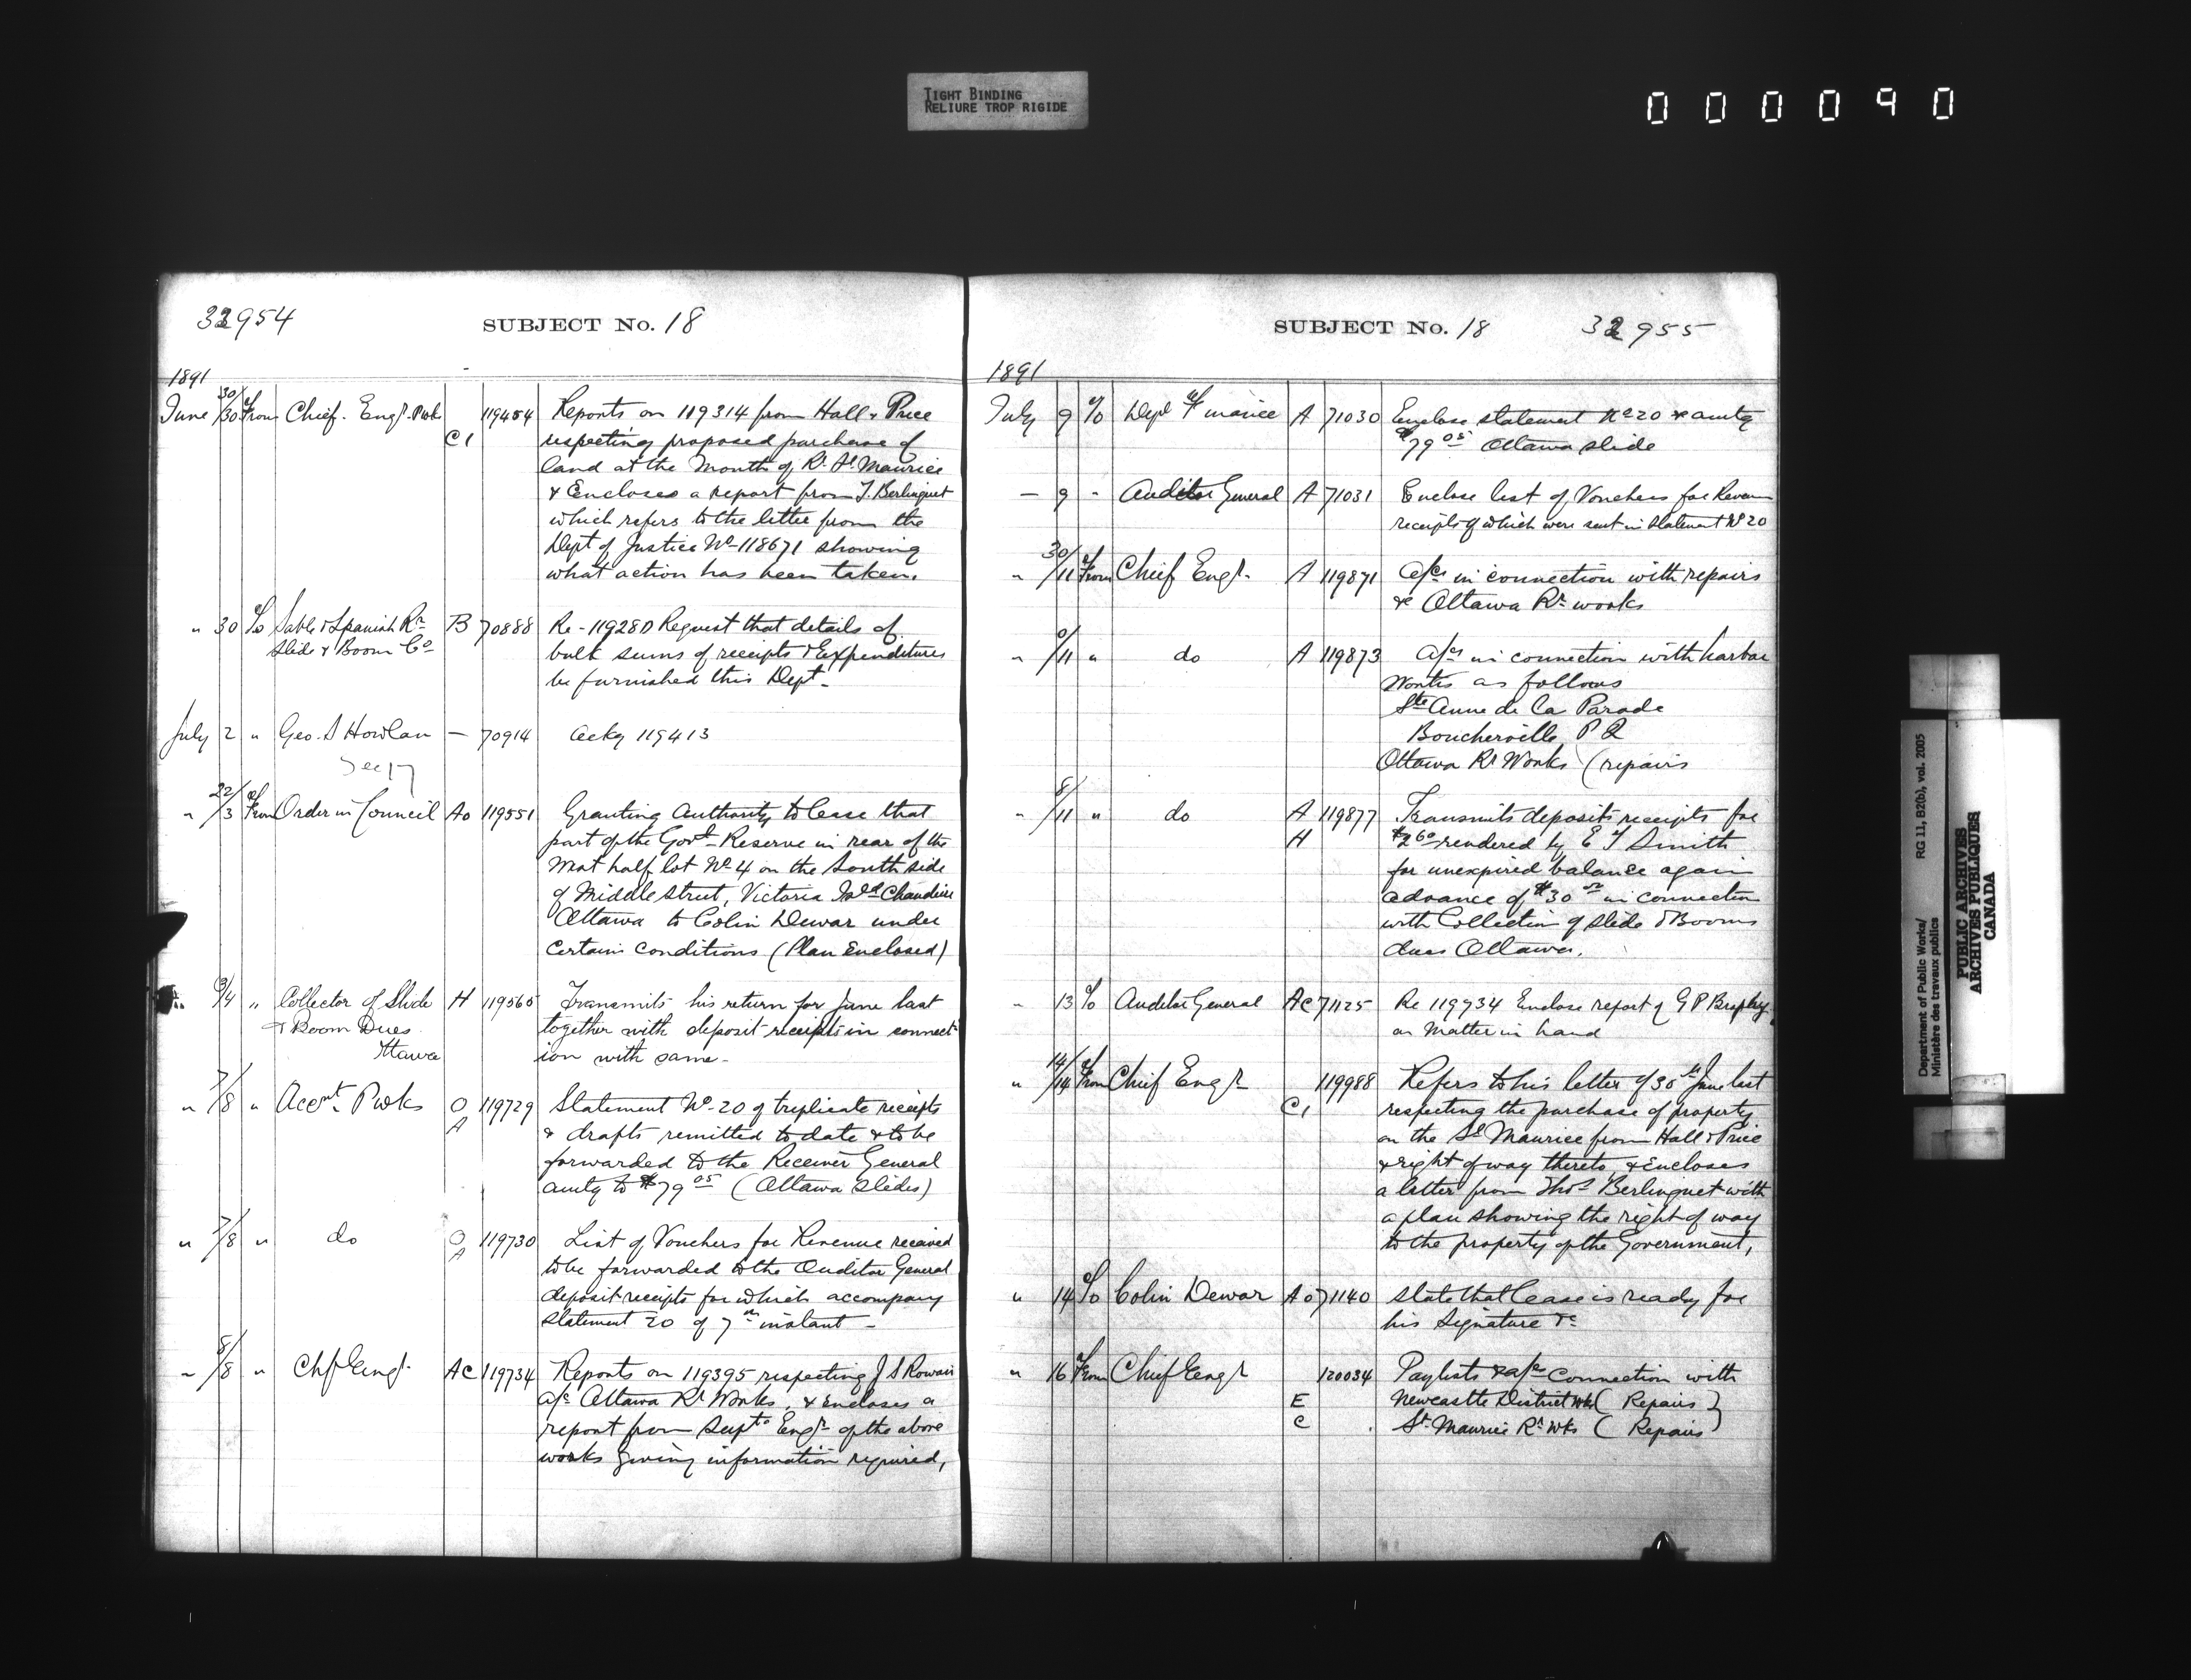 TIGHT BINDING
RELIURE TROP RIGIDE
000090
32954
SUBJECT No. 18
1891
June 30/30 From Chief. Engr. Pwks C1 119454 Reports on 119314 from Hall & Price
respecting proposed purchase of
land at the Mouth of R. St. Maurice
& Encloses a report from T. Berlinguet
which refers to the letter from the
Dept of Justice No 118671 showing
what action has been taken.
" 30 To Sable & Spanish Rr B 70888 Re - 119280 Request that details of
Slide & Boom Co bulk sums of receipts & Expenditures
be furnished this Dept-
July 2 " Geo. S Howlan — 70914 Ackg 119413
Dec 17
" 22/3 From Order in Council Ao 119551 Granting Authority to lease that
part of the Govt Reserve in rear of the
West half lot No 4 on the South side
of Middle Street, Victoria Isld Chaudiere
Ottawa to Colin Dewar under
certain conditions (Plan Enclosed)
3/4 " Collector of Slide H 119565 Transmits his return for June last
& Boom Dues together with deposit receipts in connect
ttawa ion with same-
" 7/8 " Accnt Pwks O A 119729 Statement No 20 of triplicate receipts
& drafts remitted to date & to be
forwarded to the Receiver General
amtg to $79 05 (Ottawa Slides)
" 7/8 " do O A 119730 List of Vouchers for Revenue received
to be forwarded to the Auditor General
deposit receipts for which accompany
Statement 20 of 7th instant -
" 8/8 " Chf Engr. AC 119734 Reports on 119395 respecting J S Rowan
a/c Ottawa Rr Works, & Encloses a
report from Supt Engr of the above
works giving information required,
SUBJECT No. 18
32955
1891
July 9 To Dept Finance A 71030 Enclose statement No 20 amtg
$79 05 Ottawa slide
— 9 " Auditor General A 71031 Enclose list of Vouchers for Revenue
receipts of which were sent in Statement No 20
" 30/11 From Chief Engr. A 119871 A/cs in connection with repairs
Ottawa Rr works
" 0/11 " do A 119873 A/cs in connection with harbor
Works as follows
Ste Anne de La Parade
Boucherville P Q
Ottawa Rr Works (repairs
" 8/11 " do A H 119877 Transmits deposits receipts for
$2 60 rendered by E T Smith
for unexpired balance again
advance of $30 in connection
with Collection of slide & Booms
dues Ottawa.
" 13 To Auditor General Ac 71125 Re 119734 Enclose report of G P Brophy
on Matter in hand
" 14/14 From Chief Engr C1 119988 Refers to his letter of 30th June last
respecting the purchase of property
on the St Maurice from Hall & Price
& right of way thereto, & Encloses
a letter from Thos Berlinguet with
a plan showing the right of way
to the property of the Government,
" 14 To Colin Dewar Ao 71140 State that lease is ready for
his Signature &c
" 16 From Chief Engr 120034 Paylists & a/cs Connection with
E Newcastle District Wks (Repairs)
C St Maurice Rr Wks (Repairs)
Department of Public Works/
Ministère des travaux publics
RG 11, B2(b), vol. 2005
PUBLIC ARCHIVES
ARCHIVES PUBLIQUES
CANADA